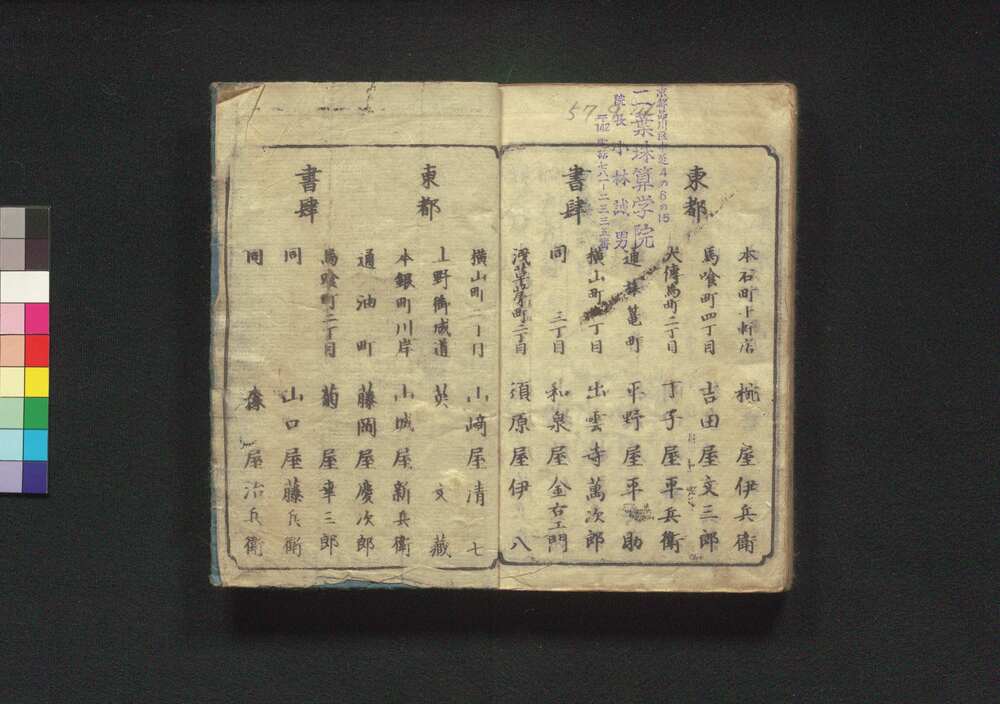 東都
書肆
本石町十軒店 椀屋伊兵衛
馬喰町四丁目 吉田屋文三郎
大傳馬町二丁目 丁子屋平兵衛
通葉篭町 平野屋平助
横山町一丁目 出雲寺萬次郎
同 三丁目 和泉屋金右エ門
浅草茅町二丁目 須原屋伊八
東都
書肆
横山町一丁目 山﨑屋清七
上野御成道 英文藏
本銀町川岸 山城屋新兵衛
通油町 藤岡屋慶次郎
馬喰町二丁目 菊屋幸三郎
同 山口屋藤兵衛
同 森屋治兵衛
4の6の15
二葉珠算学院
院長 小林誠男
〒142 電話七八一-二三三五番
57